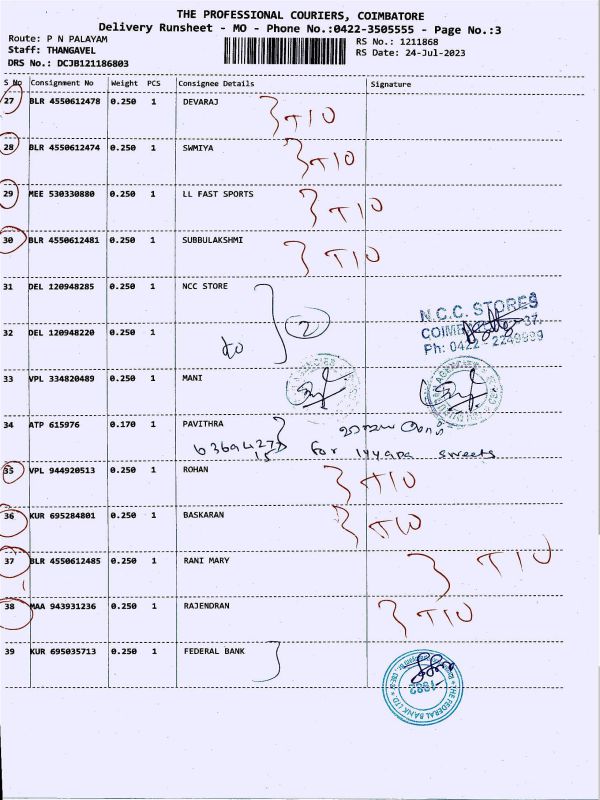 THE PROFESSIONAL COURIERS, COIMBATORE
Delivery Runsheet - MO - Phone No.:0422-3505555 - Page No.:3
Route: P N PALAYAM
RS No.: 1211868
Staff: THANGAVEL
RS Date: 24-Jul-2023
DRS No.: DCJB121186803
S No Consignment No Weight PCS Consignee Details Signature
27 BLR 4550612478 0.250 1 DEVARAJ
TIO
28 BLR 4550612474 0.250 1 SWMIYA
TIO
29 MEE 530330880 0.250 1 LL FAST SPORTS
TIO
30 BLR 4550612481 0.250 1 SUBBULAKSHMI
TIO
31 DEL 120948285 0.250 1 NCC STORE
N.C.C. STORES
2
32 DEL 120948220 0.250 1
Ph: 0422 - 2249999
33 VPL 334820489 0.250 1 MANI
34 ATP 615976 0.170 1 PAVITHRA
for iyyapa sweets
35 VPL 944920513 0.250 1 ROHAN
TIO
36 KUR 695284801 0.250 1 BASKARAN
TIO
37 BLR 4550612485 0.250 1 RANI MARY
TIO
38 MAA 943931236 0.250 1 RAJENDRAN
TIO
39 KUR 695035713 0.250 1 FEDERAL BANK
THE FEDERAL BANK LTD